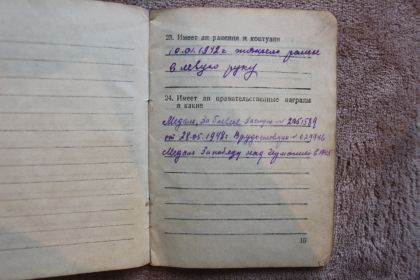 23. Имеет ли ранения и контузии
10.01.1942 г тяжело ранен
в левую руку
24. Имеет ли правительственные награды
и какие
Медаль За боевые Заслуги №
от 28.05.1948 г
Медаль За победу над Германией в 1945
15